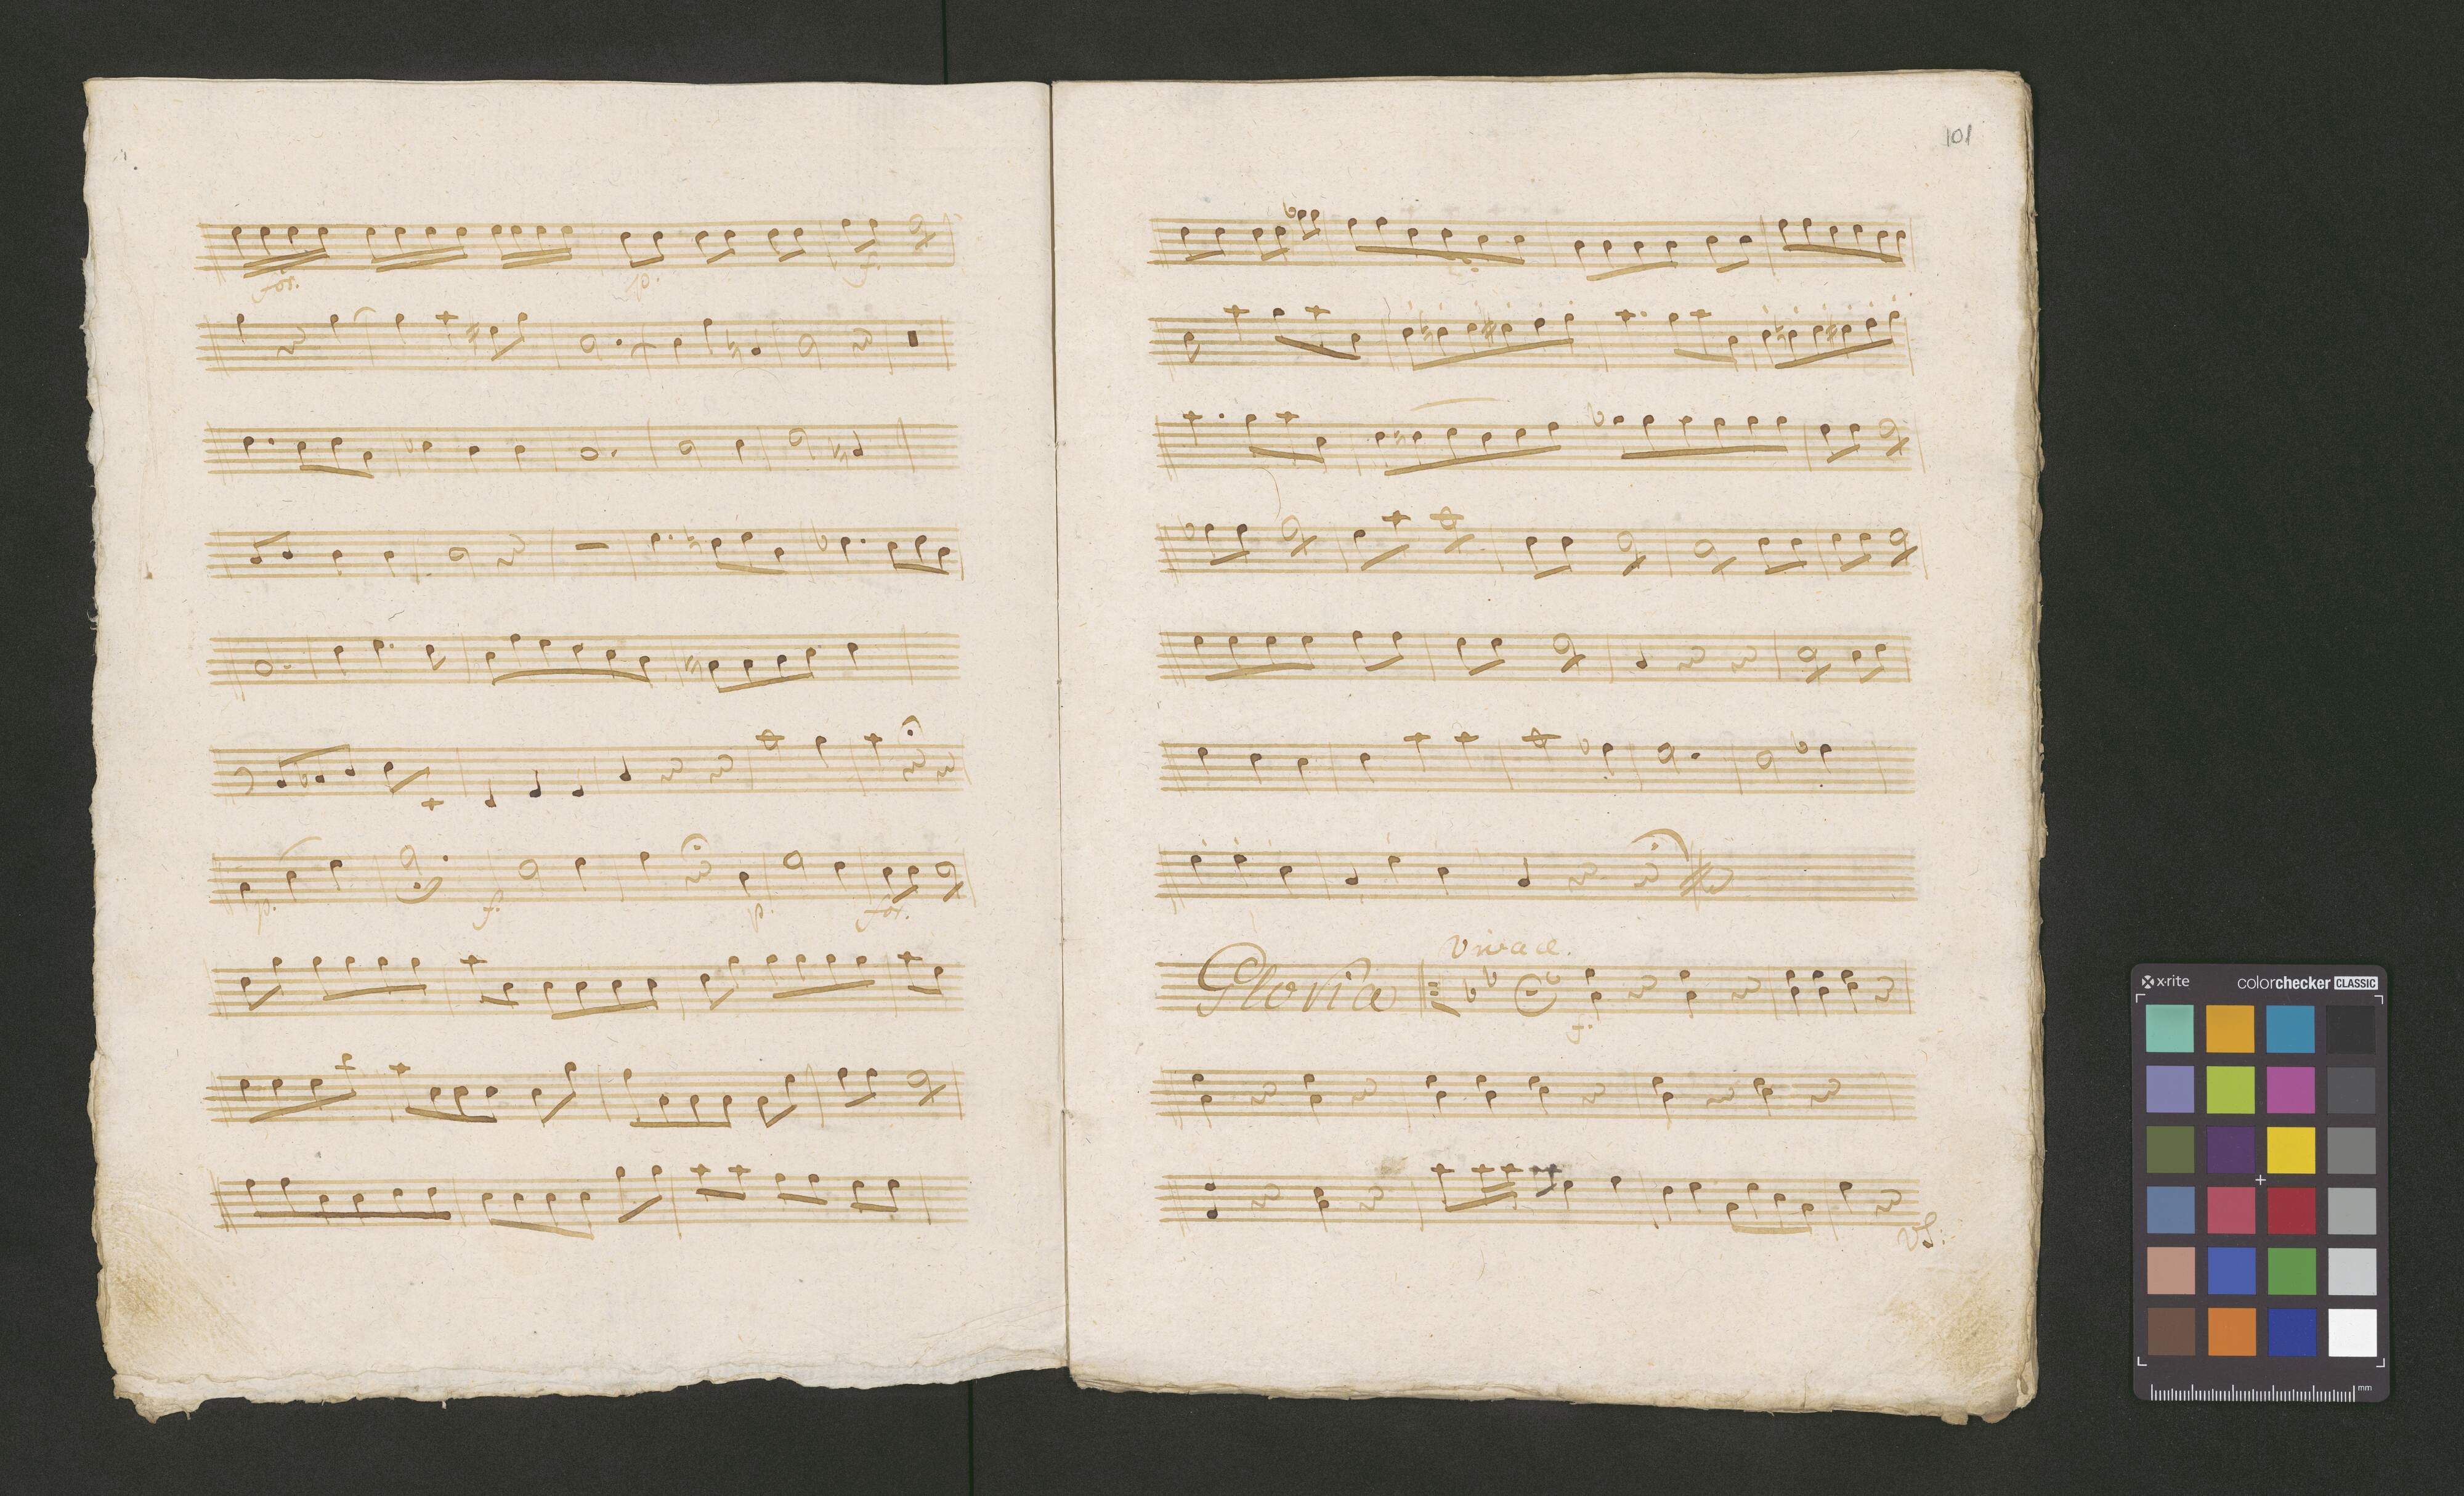 for.
p.
f.
p.
f.
p.
for.
101
Vivace.
Gloria
f.
VS:
x·rite
colorchecker CLASSIC
mm